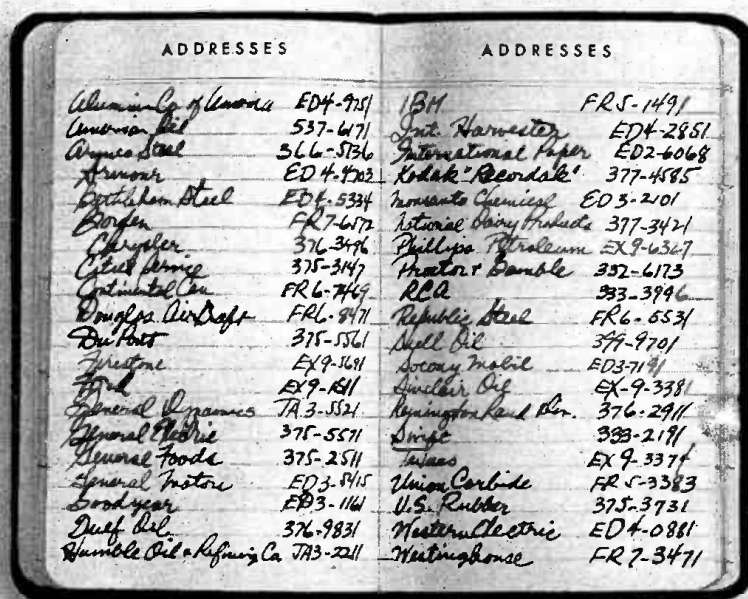 ADDRESSES
Aluminum Co of America ED4-9751
American Oil 537-6171
Armco Steel 366-5136
Armour ED4-4703
Bethlehem Steel ED4-5334
Borden FR7-6572
Chrysler 376-3496
Cities Service 375-3147
Continental Can FR6-7469
Douglas Aircraft FR6-8471
Du Pont 375-5561
Firestone EX9-5691
Ford EX9-1511
General Dynamics JA3-5521
General Electric 375-5571
General Foods 375-2511
General Motors ED3-5415
Goodyear ED3-1161
Gulf Oil 376-9831
Humble Oil & Refining Co JA3-2211
ADDRESSES
IBM FR5-1491
Int. Harvester ED4-2851
International Paper ED2-6068
Kodak "Recordak" 377-4585
Monsanto Chemical ED3-2101
National Dairy Products 377-3421
Phillips Petroleum EX9-6367
Proctor & Gamble 332-6173
RCA 333-3996
Republic Steel FR6-5531
Shell Oil 399-9701
Socony Mobil ED3-7191
Sinclair Oil EX-9-3381
Remington Rand Div. 376-2911
Swift 333-2191
Texaco EX9-3374
Union Carbide FR5-3383
U.S. Rubber 375-3731
Western Electric ED4-0881
Westinghouse FR7-3471